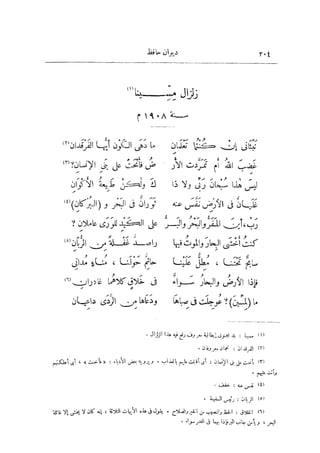 ديوان حافظ ٢٠٤
زلزال مسينا (١)
سنة ١٩٠٨ م
نبئانى إن كنتما تعلمان ما دهى الكون أيها الفرقدان (٢)
غضب الله أم تمردت الأر ض فأنحت على بنى الإنسان؟ (٣)
ليس هذا سبحان ربى ولا ذا ك ولكن طبيعة الأكوان
غليان فى الأرض نفس عنه ثوران فى البحر و (البركان) (٤)
رب، أين المفر والبحر والبر على الكيد للورى عاملان؟
كنت أخشى البحار والموت فيها راصد غفلة من الربان (٥)
سابح تحتنا، مطل علينا حائم حولنا، مناء مدانى
فإذا الأرض والبحار سواء فى خلاق كلاهما غادران (٦)
ما (لمسين)؟ عوجلت فى صباها ودعاها من الردى داعيان
(١) مسينا : بلد بجنوبى إيطاليا وقع فيه هذا الزلزال .
(٢) الفرقدان : نجمان معروفان .
(٣) أنحت على بنى الإنسان : أى أقبلت عليهم بالعذاب .
(٤) نفس عنه : خفف .
(٥) الربان : رئيس السفينة .
(٦) الخلاق : الحظ والنصيب من الخير والصلاح . يقول فى هذه الأبيات الثلاثة : إنه كان لا يخشى إلا
البحر ، فإذا بهما فى الغدر سواء .